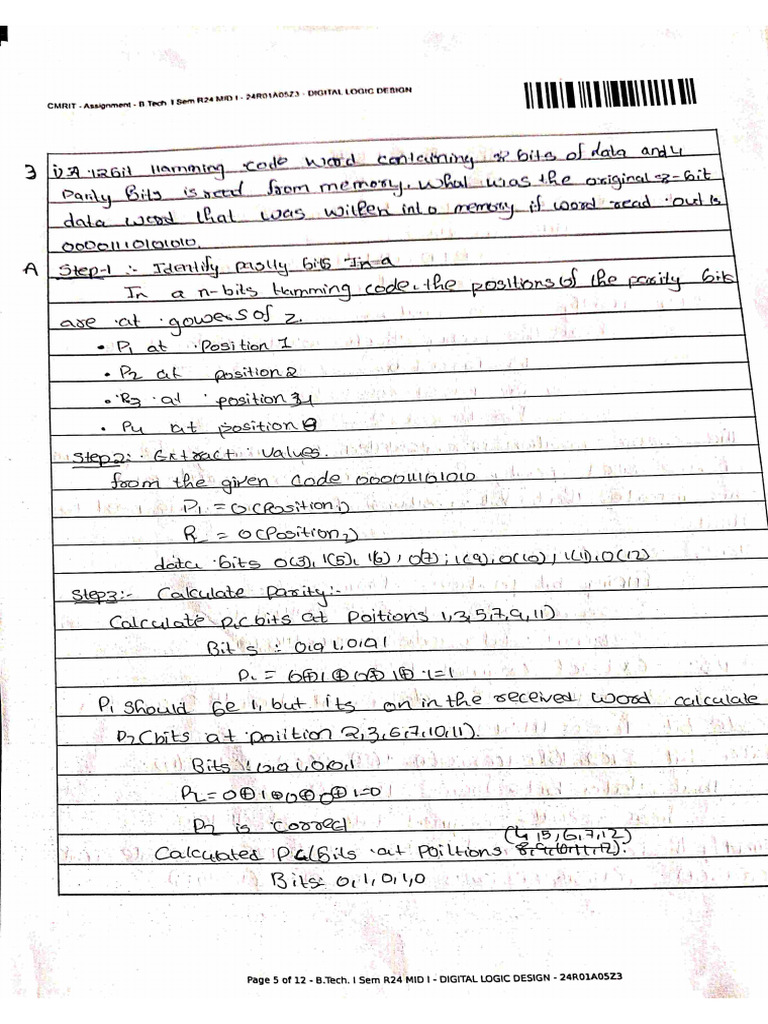 CMRIT - Assignment - B Tech I Sem R24 MID I - 24R01A05Z3 - DIGITAL LOGIC DESIGN
3 i) A 12Bit Hamming code word containing 8 bits of data and 4
Parity Bits is read from memory. What was the original 8-bit
data word that was written into memory if word read out is
000011101010.
A Step-1 :- Identify parity bits In a
In a n-bits Hamming code, the positions of the parity bits
are at powers of 2.
• P1 at Position 1
• P2 at position 2
• P3 at position 4
• P4 at position 8
Step2: Extract values.
from the given code 000011101010
P1 = 0 (Position 1)
P2 = 0 (Position 2)
data bits 0(3), 1(5), 1(6), 0(7), 1(9), 0(10), 1(11), 0(12)
Step3:- Calculate Parity:-
Calculate P1 (bits at Poitions 1,3,5,7,9,11)
Bits : 0,0,1,0,0,1
P1 = 0⊕1⊕0⊕1⊕1=1
P1 should be 1, but its on in the received word calculate
P2 (bits at poiition 2,3,6,7,10,11).
Bits : 0,0,1,0,0,1
P2 = 0⊕1⊕0⊕0⊕1=0
P2 is correct
(4,5,6,7,12)
Calculated P4 (Bits at Poiitions 8,9,10,11,12).
Bits: 0,1,0,1,0
Page 5 of 12 - B.Tech. I Sem R24 MID I - DIGITAL LOGIC DESIGN - 24R01A05Z3